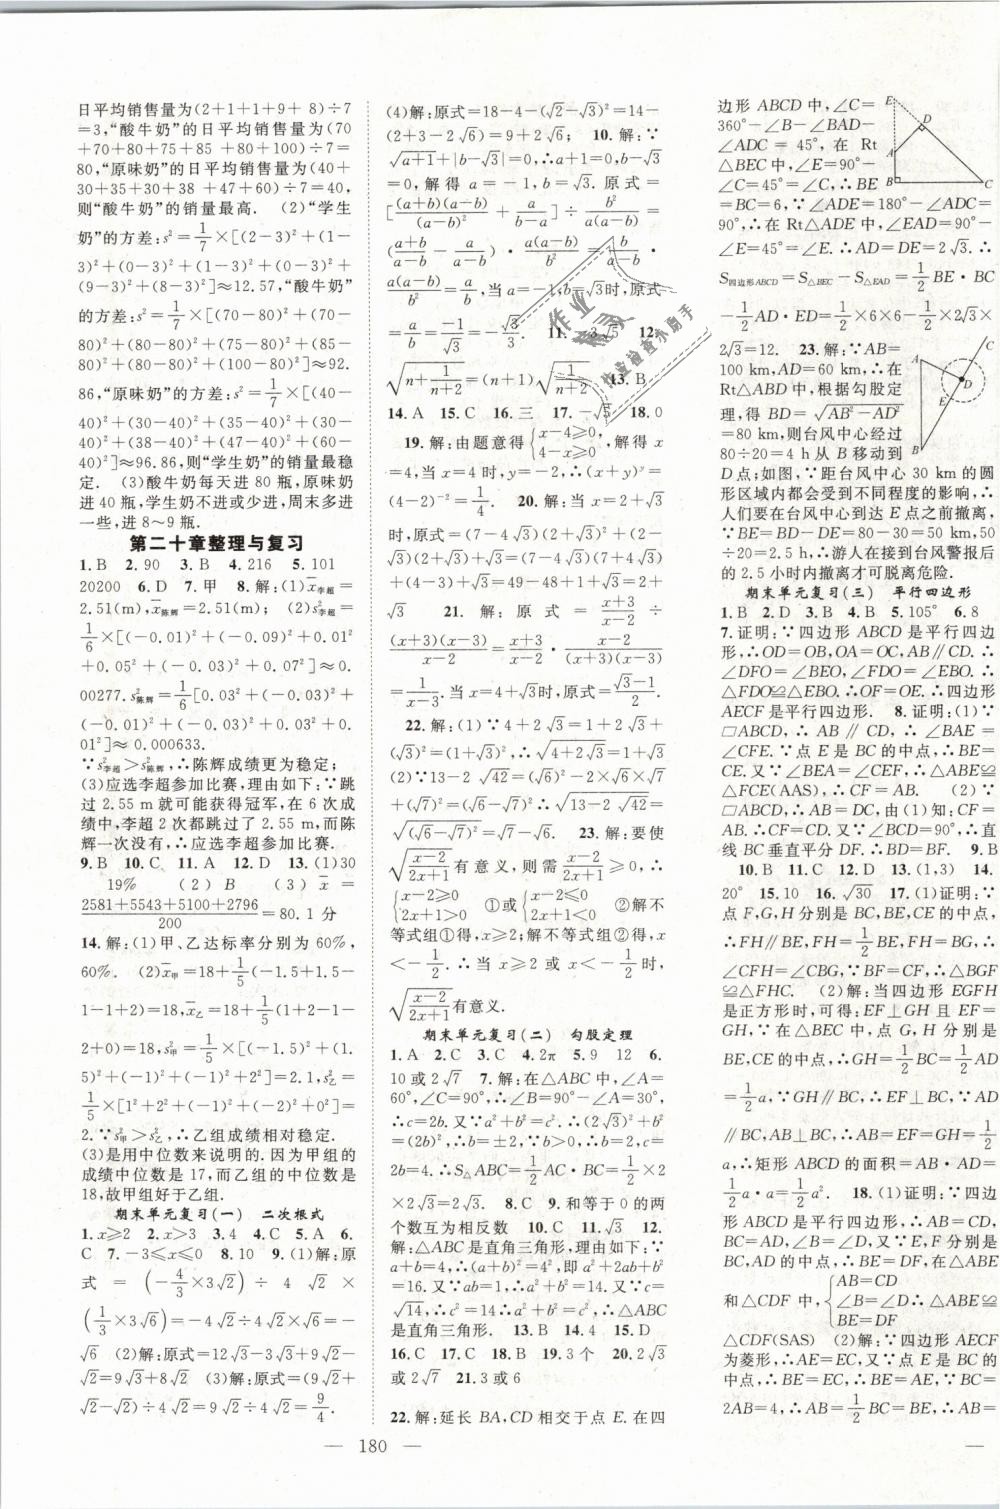 日平均销售量为(2+1+1+9+ 8)÷7
=3,“酸牛奶”的日平均销售量为(70
+70+80+75+85 +80+100)÷7=
80,“原味奶”的日平均销售量为(40+
30+35+30+38 +47+60)÷7=40,
则“酸牛奶”的销量最高. (2)“学生
奶”的方差:s²=1/7×[(2-3)²+(1-
3)²+(0-3)²+(1-3)²+(1-3)²+
(9-3)²+(8-3)²]≈12.57,“酸牛奶”
的方差:s²=1/7×[(70-80)²+(70-
80)²+(80-80)²+(75-80)²+(85-
80)²+(80-80)²+(100-80)²]≈92.
86,“原味奶”的方差:s²=1/7×[(40-
40)²+(30-40)²+(35-40)²+(30-
40)²+(38-40)²+(47-40)²+(60-
40)²]≈96.86,则“学生奶”的销量最稳
定. (3)酸牛奶每天进 80 瓶,原味奶
进 40 瓶,学生奶不进或少进,周末多进
一些,进 8～9 瓶.
第二十章整理与复习
1.B 2.90 3.B 4.216 5.101
20200 6.D 7.甲 8.解:(1)x̄李超=
2.51(m),x̄陈辉=2.51(m); (2)s²李超=
1/6×[(-0.01)²+(-0.09)²+0.01²
+0.05²+(-0.03)²+0.07²]≈0.
00277.s²陈辉=1/6[0.03²+(-0.01)²+
(-0.01)²+(-0.03)²+0.03²+0.
01²]≈0.000633.
∵s²李超>s²陈辉,∴陈辉成绩更为稳定;
(3)应选李超参加比赛,理由如下:∵跳
过 2.55 m就可能获得冠军,在 6 次成
绩中,李超 2 次都跳过了 2.55 m,而陈
辉一次没有,∴应选李超参加比赛.
9.B 10.C 11.A 12.D 13.(1)30
19% (2)B (3)x̄=
(2581+5543+5100+2796)/200=80.1 分
14.解:(1)甲、乙达标率分别为 60%,
60%. (2)x̄甲=18+1/5(-1.5+1.5-
1-1+2)=18,x̄乙=18+1/5(1+2-1-
2+0)=18,s²甲=1/5×[(-1.5)²+(1.
5)²+(-1)²+(-1)²+2²]=2.1,s²乙=
1/5×[1²+2²+(-1)²+(-2)²+0²]=
2.∵s²甲>s²乙,∴乙组成绩相对稳定.
(3)是用中位数来说明的.因为甲组的
成绩中位数是 17,而乙组的中位数是
18,故甲组好于乙组.
期末单元复习(一) 二次根式
1.x≥2 2.x>3 3.4 4.C 5.A 6.
C 7.-3≤x≤0 8.10 9.(1)解:原
式=(-4/3×3√2)÷4√2×
(1/3×3√6)=-4√2÷4√2×√6=-
√6 (2)解:原式=12√3-3√3+9√3
=18√3 (3)解:原式=(9√2+
√2-√2)÷4√2=9√2÷4√2=9/4.
(4)解:原式=18-4-(√2-√3)²=14-
(2+3-2√6)=9+2√6; 10.解:∵
√(a+1)+|b-√3|=0,∴a+1=0,b-√3
=0,解得 a=-1,b=√3.原式=
[(a+b)(a-b)/(a-b)²+a/(b-a)]÷b²/(a(a-b))=
((a+b)/(a-b)-a/(a-b))·a(a-b)/b²=b/(a-b)·
a(a-b)/b²=a/b,当 a=-1,b=√3时,原式
=a/b=-1/√3=-√3/3. 12.
√(n+1/(n+2))=(n+1)√(1/(n+2)) 13.B
14.A 15.C 16.三 17.-√5 18.0
19.解:由题意得{x-4≥0,4-x≥0.解得 x
=4,当 x=4 时,y=-2,∴(x+y)^y=
(4-2)⁻²=1/4. 20.解:当 x=2+√3
时,原式=(7-4√3)(2+√3)²+(2-√3)
(2+√3)+√3=(7-4√3)(7+4√3)+
(4-3)+√3=49-48+1+√3=2+
√3 21.解:原式=(x+3)/(x-2)÷
(x+3)(x-3)/(x-2)=(x+3)/(x-2)·(x-2)/((x+3)(x-3))=
1/(x-3).当 x=4+√3时,原式=(√3-1)/2.
22.解:(1)∵4+2√3=1+2√3+
(√3)²=(1+√3)²,∴√(4+2√3)=1+√3
(2)∵13-2√42=(√6)²-2×√6×√7
+(√7)²=(√6-√7)²,∴√(13-2√42)=
√((√6-√7)²)=√7-√6. 23.解:要使
√((x-2)/(2x+1))有意义,则需(x-2)/(2x+1)≥0,∴
{x-2≥0,2x+1>0 ①或{x-2≤0,2x+1<0 ②解不
等式组①得,x≥2;解不等式组②得,x
<-1/2.∴当 x≥2 或 x<-1/2时,
√((x-2)/(2x+1))有意义.
期末单元复习(二) 勾股定理
1.A 2.C 3.C 4.2π 5.9 12 6.
10或2√7 7.解:在△ABC中,∠A=
60°,∠C=90°,∴∠B=30°,∴AB=2AC,
∴c=2b.又∵a²+b²=c².∴(2√3)²+b²
=(2b)²,∴b=±2,∵b>0,∴b=2,c=
2b=4.∴S△ABC=1/2AC·BC=1/2×2
×2√3=2√3. 8.C 9.和等于 0 的两
个数互为相反数 10.C 11.√3 12.
解:△ABC是直角三角形,理由如下:∵
a+b=4,∴(a+b)²=4²,即 a²+2ab+b²
=16.又∵ab=1,∴a²+b²=14.又∵c=
√14,∴c²=14∴a²+b²=c²,∴△ABC
是直角三角形. 13.B 14.4 15.D
16.C 17.C 18.B 19.3个 20.2√3
或2√7 21.3 或 6
22.解:延长 BA,CD 相交于点 E.在四
边形 ABCD 中,∠C=
360°-∠B-∠BAD-
∠ADC = 45°,在 Rt
△BEC中,∠E=90°-
∠C=45°=∠C,∴BE
=BC=6,∵∠ADE=180°-∠ADC=
90°,∴在Rt△ADE中,∠EAD=90°-
∠E=45°=∠E.∴AD=DE=2√3.∴
S四边形ABCD=S△BEC-S△EAD=1/2BE·BC
-1/2AD·ED=1/2×6×6-1/2×2√3×
2√3=12. 23.解:∵AB=
100 km,AD=60 km,∴在
Rt△ABD中,根据勾股定
理,得 BD=√(AB²-AD²)
=80 km,则台风中心经过
80÷20=4 h 从 B 移动到
D点;如图,∵距台风中心 30 km 的圆
形区域内都会受到不同程度的影响,∴
人们要在台风中心到达 E 点之前撤离,
∵BE=BD-DE=80-30=50km,50
÷20=2.5 h,∴游人在接到台风警报后
的 2.5 小时内撤离才可脱离危险.
期末单元复习(三) 平行四边形
1.B 2.D 3.B 4.B 5.105° 6.8
7.证明:∵四边形 ABCD 是平行四边
形,∴OD=OB,OA=OC,AB∥CD.∴
∠DFO=∠BEO,∠FDO=∠EBO.∴
△FDO≌△EBO.∴OF=OE.∴四边形
AECF是平行四边形. 8.证明:(1)∵
□ABCD,∴AB∥CD,∴∠BAE=
∠CFE.∵点 E 是 BC 的中点,∴BE=
CE.又∵∠BEA=∠CEF,∴△ABE≌
△FCE(AAS),∴CF=AB. (2)∵
□ABCD,∴AB=DC,由(1)知:CF=
AB.∴CF=CD.又∵AC⊥DF,∴直
线 BC垂直平分 DF.∴BD=BF. 9.B
10.B 11.C 12.D 13.(1,3) 14.
20° 15.10 16.√30 17.(1)证明:∵
点 F,G,H 分别是 BC,BE,CE 的中点,
∴FH∥BE,FH=1/2BE,FH=BG,∴
∠CFH=∠CBG,∵BF=CF,∴△BGF
≌△FHC. (2)解:当四边形 EGFH
是正方形时,可得:EF⊥GH 且 EF=
GH,∵在△BEC 中,点 G,H 分别是
BE,CE的中点,∴GH=1/2BC=1/2AD
=1/2a,∵GH∥BC,∴EF⊥BC,∵AD
∥BC,AB⊥BC,∴AB=EF=GH=1/2
a,∴矩形 ABCD 的面积=AB·AD=
1/2a·a=1/2a². 18.(1)证明:∵四边
形 ABCD 是平行四边形,∴AB=CD,
BC=AD,∠B=∠D,又∵E,F 分别是
BC,AD的中点,∴BE=DF,在△ABE
和△CDF中,{AB=CD,∠B=∠D,BE=DF ∴△ABE≌
△CDF(SAS) (2)解:∵四边形 AECF
为菱形,∴AE=EC,又∵点 E 是BC的
中点,∴BE=EC,∴BE=AE,∵BC=
2AB=4,∴AB=1/2BC=BE,∴AB=
— 180 —